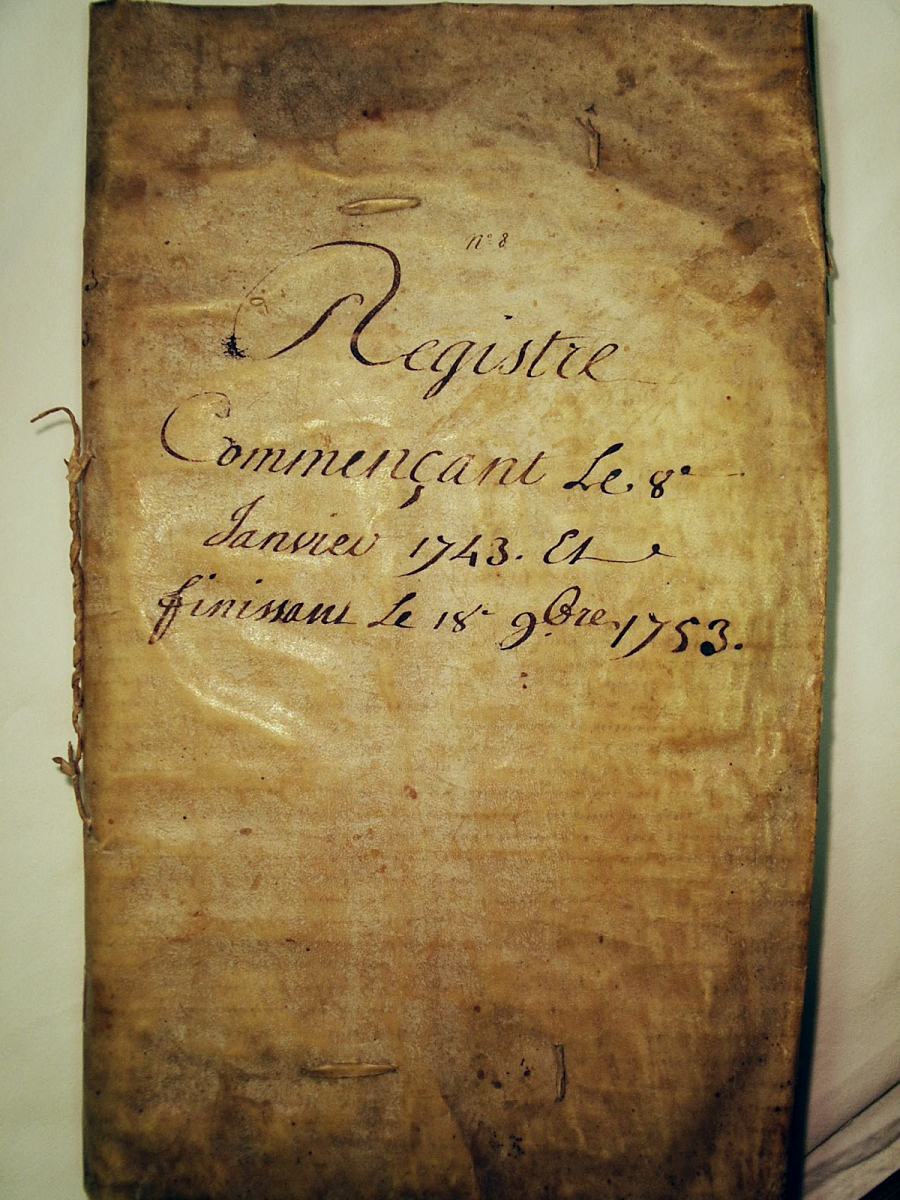 n° 8
Registre
Commençant Le 8e
Janvier 1743. Et
finissant Le 18e 9bre 1753.